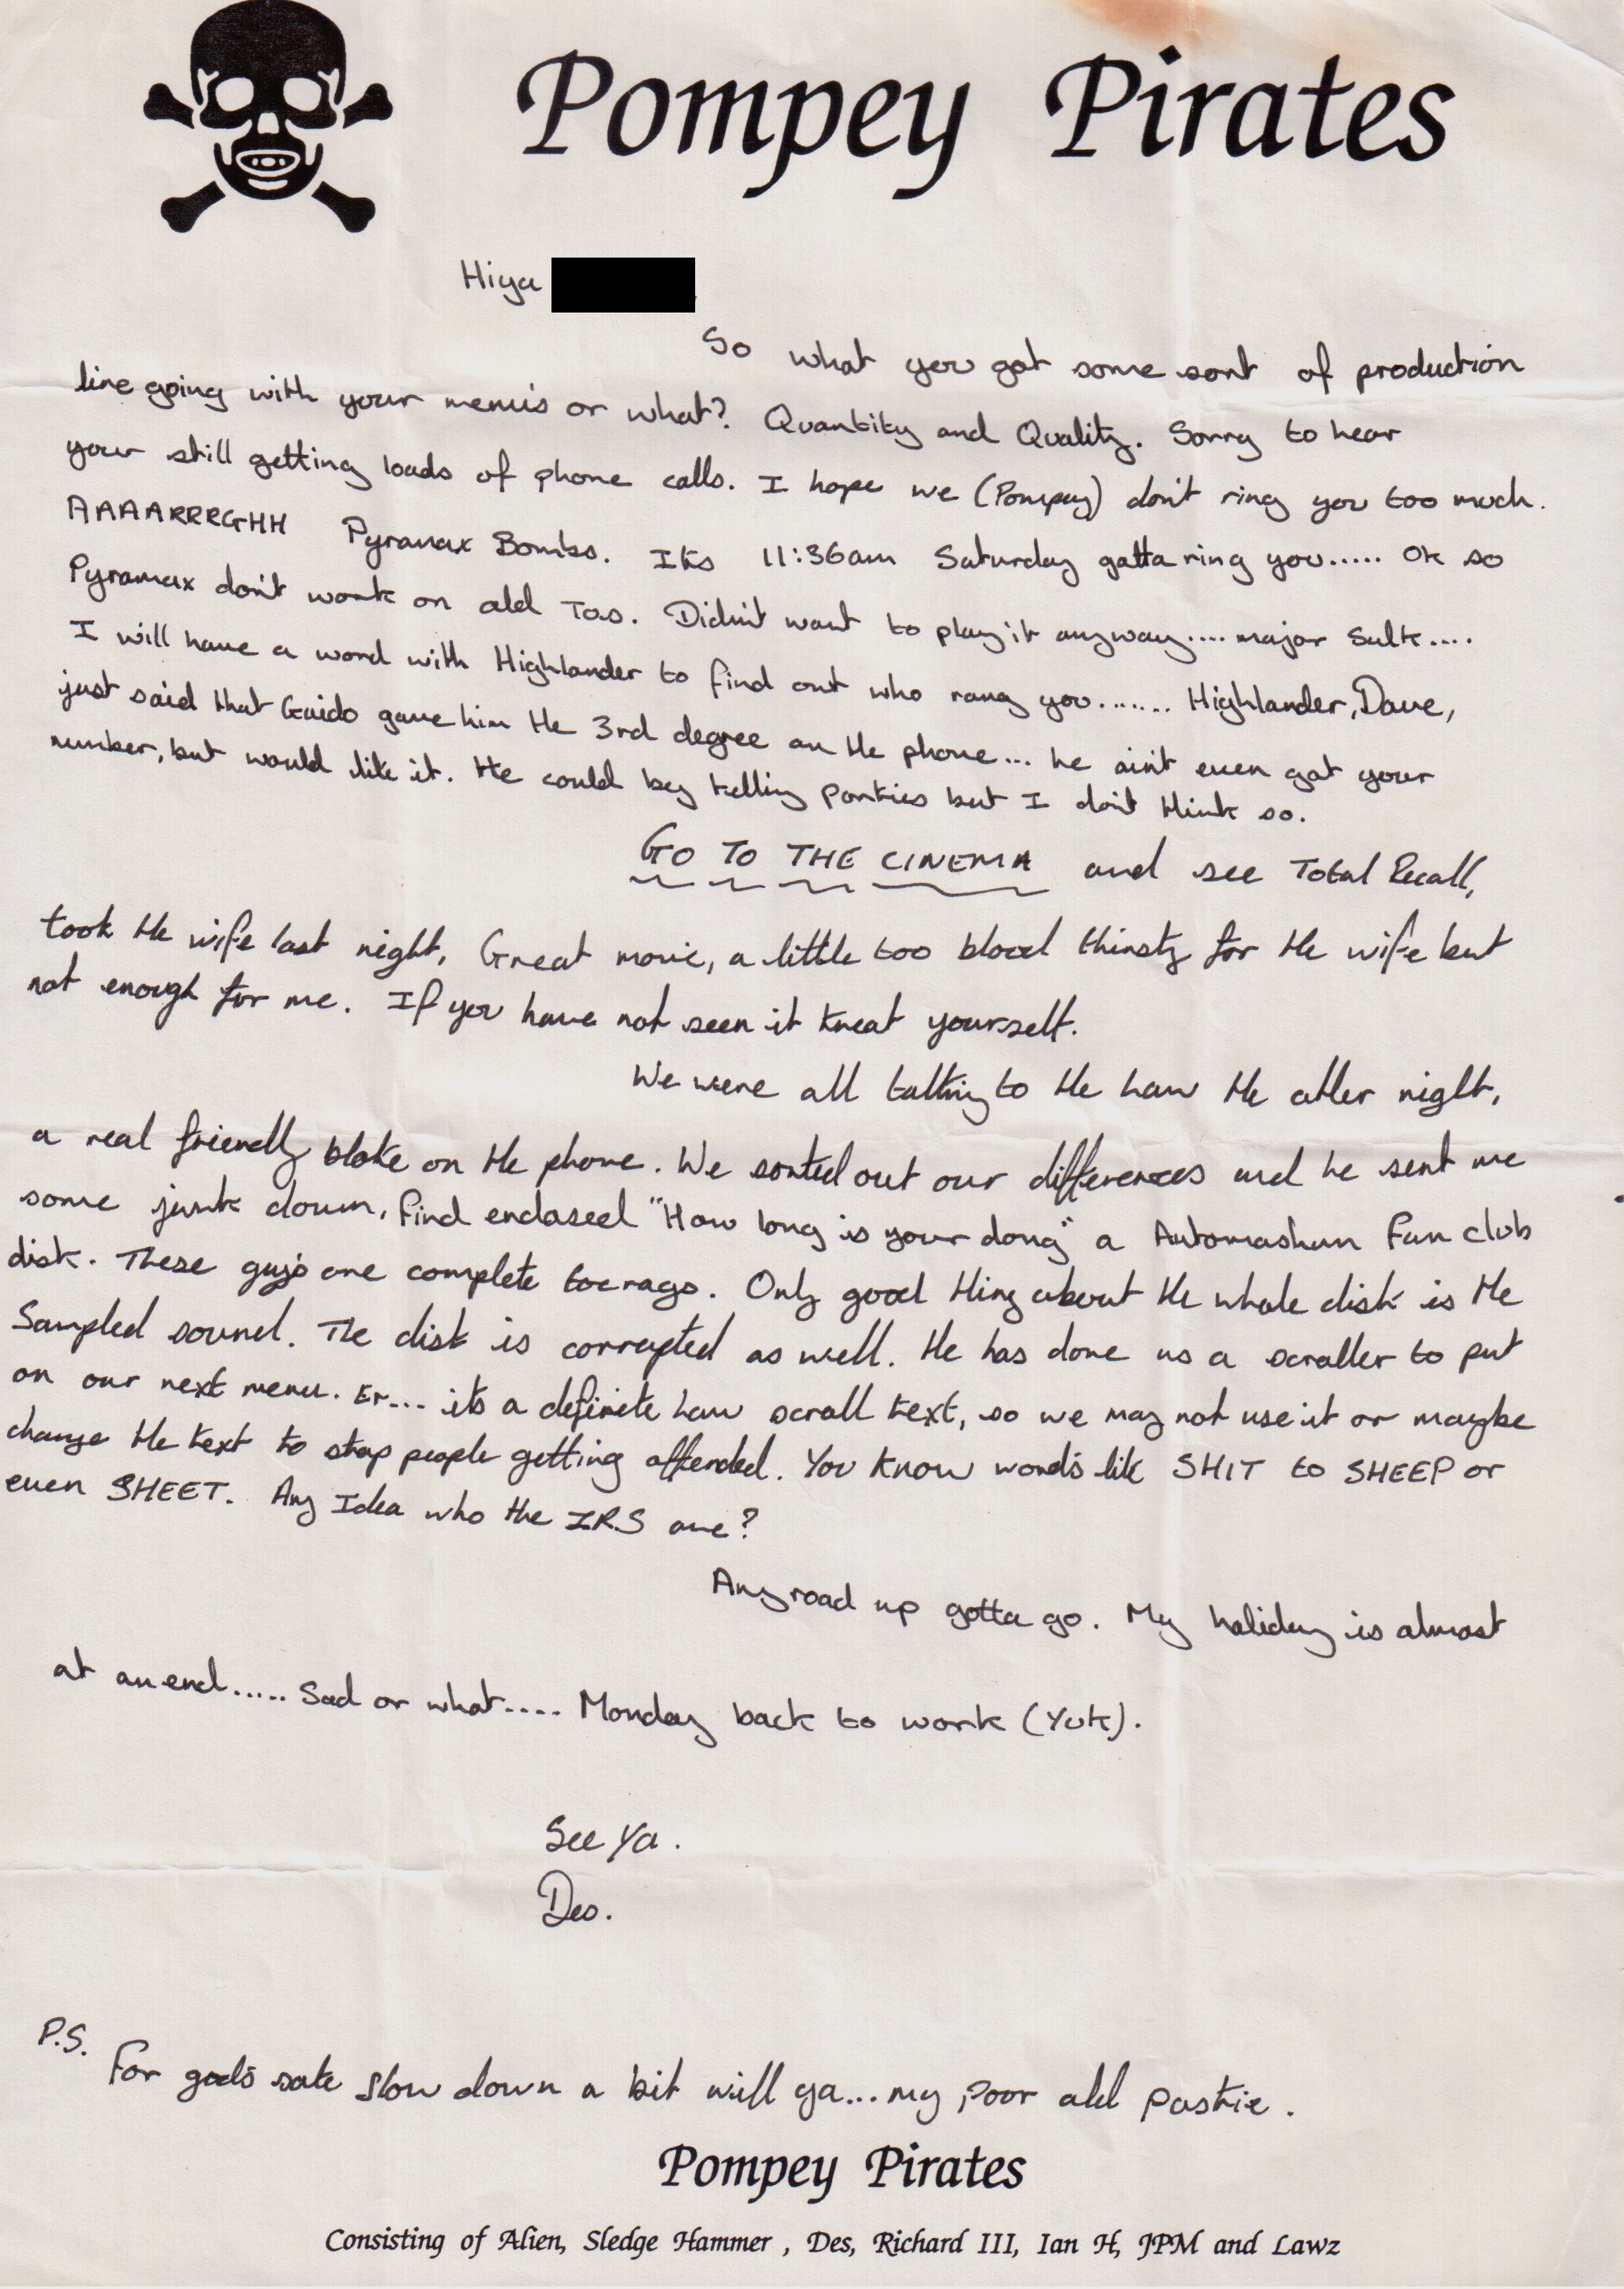 Pompey Pirates
Hiya
So what you got some sort of production
line going with your menu's or what? Quantity and Quality. Sorry to hear
your still getting loads of phone calls. I hope we (Pompey) don't ring you too much.
AAAARRRGHH Pyramax Bombs. Its 11:36am Saturday gotta ring you..... OK so
Pyramax don't work on old Tos. Didn't want to play it anyway.... major Sulk....
I will have a word with Highlander to find out who rang you....... Highlander, Dave,
just said that Gaido gave him the 3rd degree on the phone... he ain't even got your
number, but would like it. He could be telling porkies but I don't think so.
GO TO THE CINEMA and see Total Recall,
took the wife last night, Great movie, a little too blood thirsty for the wife but
not enough for me. If you have not seen it treat yourself.
We were all talking to the Law the other night,
a real friendly bloke on the phone. We sorted out our differences and he sent me
some junk down, find enclosed "How long is your dong" a Automashun Fan club
disk. These guy's are complete toerags. Only good thing about the whole disk is the
Sampled sound. The disk is corrupted as well. He has done us a scroller to put
on our next menu. Er... its a definite Law scroll text, so we may not use it or maybe
change the text to stop people getting offended. You know word's like SHIT to SHEEP or
even SHEET. Any Idea who the I.R.S are?
Anyroad up gotta go. My holiday is almost
at an end..... Sad or what.... Monday back to work (Yuk).
See Ya.
Des.
P.S.
For god's sake slow down a bit will ya... my poor old postie.
Pompey Pirates
Consisting of Alien, Sledge Hammer , Des, Richard III, Ian H, JPM and Lawz